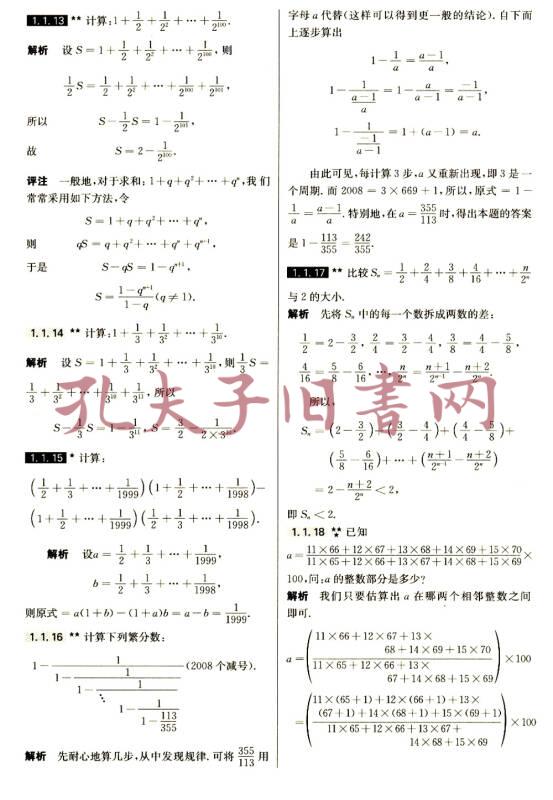 1.1.13 ** 计算:1+1/2+1/2²+…+1/2¹⁰⁰.
解析 设 S=1+1/2+1/2²+…+1/2¹⁰⁰,则
1/2 S=1/2+1/2²+…+1/2¹⁰⁰+1/2¹⁰¹,
所以 S-1/2 S=1-1/2¹⁰¹,
故 S=2-1/2¹⁰⁰.
评注 一般地,对于求和:1+q+q²+…+qⁿ,我们
常常采用如下方法,令
S=1+q+q²+…+qⁿ,
则 qS=q+q²+…+qⁿ+qⁿ⁺¹,
于是 S-qS=1-qⁿ⁺¹,
S=(1-qⁿ⁺¹)/(1-q)(q≠1).
1.1.14 ** 计算:1+1/3+1/3²+…+1/3¹⁰.
解析 设 S=1+1/3+1/3²+…+1/3¹⁰,则1/3 S=
1/3+1/3²+…+1/3¹⁰+1/3¹¹,所以
S-1/3 S=1-1/3¹¹,S=3/2-1/(2×3¹⁰).
1.1.15 * 计算:
(1/2+1/3+…+1/1999)(1+1/2+…+1/1998)-
(1+1/2+…+1/1999)(1/2+1/3+…+1/1998).
解析 设a=1/2+1/3+…+1/1999,
b=1/2+1/3+…+1/1998,
则原式=a(1+b)-(1+a)b=a-b=1/1999.
1.1.16 ** 计算下列繁分数:
1-1/(1-1/(1-1/(⋱ 1-1/(1-113/355))))(2008个减号).
解析 先耐心地算几步,从中发现规律.可将355/113用
字母a代替(这样可以得到更一般的结论).自下而
上逐步算出
1-1/a=(a-1)/a,
1-1/((a-1)/a)=1-a/(a-1)=-1/(a-1),
1-1/(-1/(a-1))=1+(a-1)=a.
由此可见,每计算3步,a又重新出现,即3是一
个周期.而2008=3×669+1,所以,原式=1-
1/a=(a-1)/a.特别地,在a=355/113时,得出本题的答案
是1-113/355=242/355.
1.1.17 ** 比较Sₙ=1/2+2/4+3/8+4/16+…+n/2ⁿ
与2的大小.
解析 先将Sₙ中的每一个数拆成两数的差:
1/2=2-3/2,2/4=3/2-4/4,3/8=4/4-5/8,
4/16=5/8-6/16,…,n/2ⁿ=(n+1)/2ⁿ⁻¹-(n+2)/2ⁿ.
所以,
Sₙ=(2-3/2)+(3/2-4/4)+(4/4-5/8)+
(5/8-6/16)+…+((n+1)/2ⁿ⁻¹-(n+2)/2ⁿ)
=2-(n+2)/2ⁿ<2,
即Sₙ<2.
1.1.18 *** 已知
a=(11×66+12×67+13×68+14×69+15×70)/(11×65+12×66+13×67+14×68+15×69)×
100,问:a的整数部分是多少?
解析 我们只要估算出a在哪两个相邻整数之间
即可.
a=((11×66+12×67+13×68+14×69+15×70)/(11×65+12×66+13×67+14×68+15×69))×100
=((11×(65+1)+12×(66+1)+13×(67+1)+14×(68+1)+15×(69+1))/(11×65+12×66+13×67+14×68+15×69))×100
孔夫子旧书网